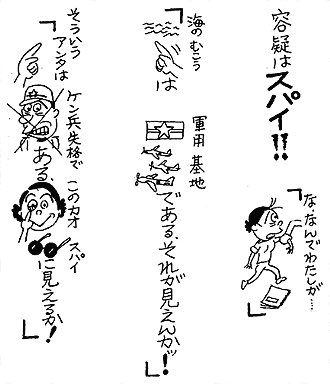 容疑はスパイ!!
「ななんでわたしが……」
「海のむこうは
軍用基地である、それが見えんかッ!」
「そういうアンタは
ケン兵失格である、
このカオスパイに見えるか!」